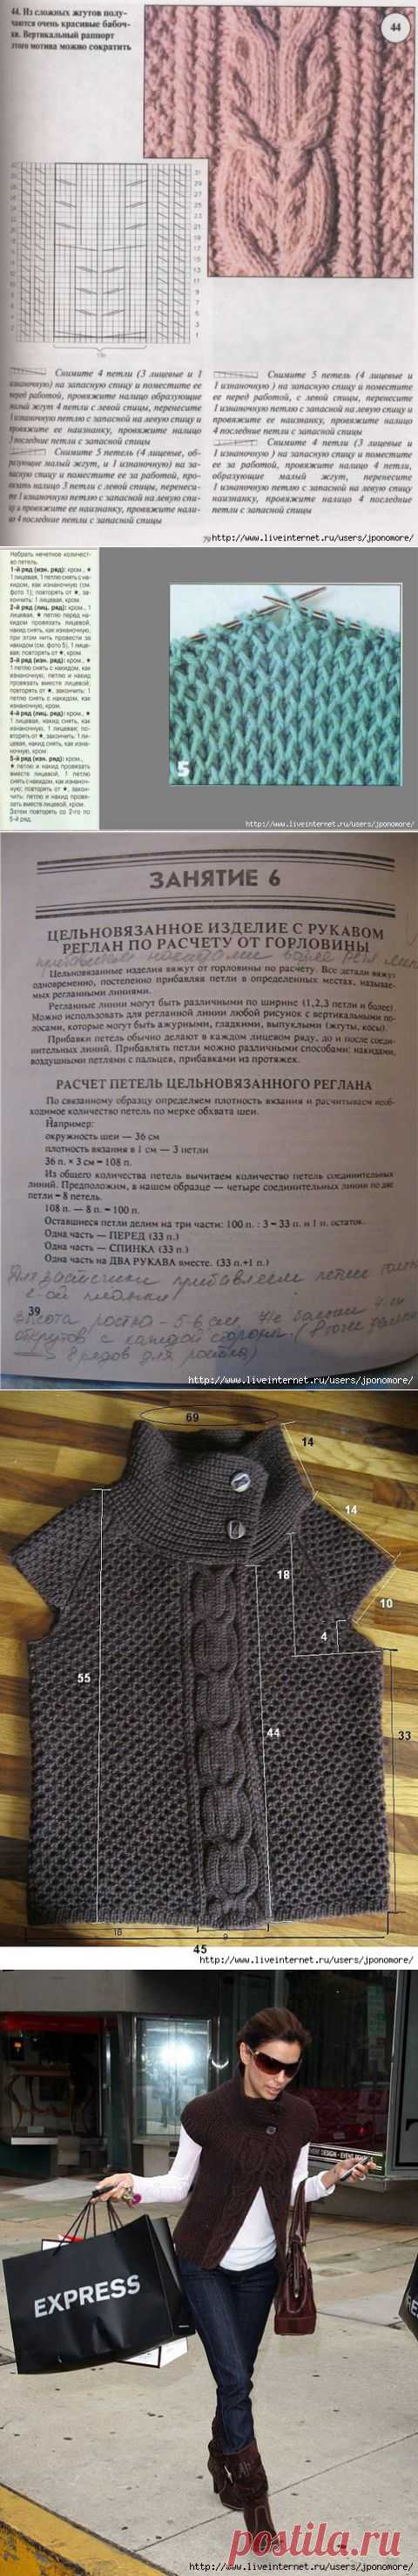 44. Из сложных жгутов полу-
чаются очень красивые бабоч-
ки. Вертикальный раппорт
этого мотива можно сократить
44
Снимите 4 петли (3 лицевые и 1
изнаночную) на запасную спицу и поместите ее
перед работой, провяжите налицо образующие
малый жгут 4 петли с левой спицы, перенесите
1 изнаночную петлю с запасной на левую спицу и
провяжите ее наизнанку, провяжите налицо
3 последние петли с запасной спицы
Снимите 5 петель (4 лицевые, об-
разующие малый жгут, и 1 изнаночную) на за-
пасную спицу и поместите ее за работой, про-
вязать налицо 3 петли с левой спицы, перенеси-
те 1 изнаночную петлю с запасной на левую спи-
цу и провяжите ее наизнанку, провяжите нали-
цо 4 последние петли с запасной спицы
Снимите 5 петель (4 лицевые и
1 изнаночную ) на запасную спицу и поместите
ее перед работой, с левой спицы, перенесите
1 изнаночную петлю с запасной на левую спицу и
провяжите ее наизнанку, провяжите налицо
4 последние петли с запасной спицы
Снимите 4 петли (3 лицевые и
1 изнаночную ) на запасную спицу и поместите
ее за работой, провяжите налицо 4 петли,
образующие малый жгут, перенесите
1 изнаночную петлю с запасной на левую спицу
наизнанку, провяжите налицо 4 последние
петли с запасной спицы
http://www.liveinternet.ru/users/jponomore/
Набрать нечетное количест-
во петель.
1-й ряд (изн. ряд): кром., ★
1 лицевая, 1 петлю снять с на-
кидом, как изнаночную (см.
фото 1); повторять от ★, за-
кончить: 1 лицевая, кром.
2-й ряд (лиц. ряд): кром., 1
лицевая, ★ петлю перед на-
кидом провязать лицевой,
накид снять, как изнаночную,
при этом нить провести за
накидом (см. фото 5), 1 лице-
вая; повторять от ★, кром.
3-й ряд (изн. ряд): кром., ★
1 петлю снять с накидом, как
изнаночную, петлю и накид
провязать вместе лицевой;
повторять от ★, закончить: 1
петлю снять с накидом, как
изнаночную, кром.
4-й ряд (лиц. ряд): кром., ★
1 лицевая, накид снять, как
изнаночную, 1 лицевая; по-
вторять от ★, закончить: 1 ли-
цевая, накид снять, как изна-
ночную, кром.
5-й ряд (изн. ряд): кром.,
★ петлю и накид провязать
вместе лицевой, 1 петлю
снять с накидом, как изнаноч-
ную; повторять от ★, закон-
чить: петлю и накид провя-
зать вместе лицевой, кром.
Затем повторять со 2-го по
5-й ряд.
5
http://www.liveinternet.ru/users/jponomore/
ЗАНЯТИЕ 6
ЦЕЛЬНОВЯЗАННОЕ ИЗДЕЛИЕ С РУКАВОМ
РЕГЛАН ПО РАСЧЕТУ ОТ ГОРЛОВИНЫ
прибавляем накидами возле рег. лин
Цельновязанные изделия вяжут от горловины по расчёту. Все детали вяжут
одновременно, постепенно прибавляя петли в определенных местах, называе-
мых регланными линиями.
Регланные линии могут быть различными по ширине (1,2,3 петли и более)
Можно использовать для регланной линии любой рисунок с вертикальными по-
лосами, которые могут быть ажурными, гладкими, выпуклыми (жгуты, косы).
Прибавки петель обычно делают в каждом лицевом ряду, до и после соеди-
нительных линий. Прибавлять петли можно различными способами: накидами,
воздушными петлями с пальцев, прибавками из протяжек.
РАСЧЕТ ПЕТЕЛЬ ЦЕЛЬНОВЯЗАННОГО РЕГЛАНА
По связанному образцу определяем плотность вязания и рассчитываем необ-
ходимое количество петель по мерке обхвата шеи.
Например:
окружность шеи — 36 см
плотность вязания в 1 см — 3 петли
36 п. × 3 см = 108 п.
Из общего количества петель вычитаем количество петель соединительных
линий. Предположим, в нашем образце — четыре соединительных линии по две
петли = 8 петель.
108 п. — 8 п. = 100 п.
Оставшиеся петли делим на три части: 100 п. : 3 = 33 п. и 1 п. остаток.
Одна часть — ПЕРЕД (33 п.)
Одна часть — СПИНКА (33 п.)
Одна часть на ДВА РУКАВА вместе. (33 п.+1 п.)
Для расстежки прибавляем петли
ой планки
39
Высота ростка - 5-6 см, не более
с каждой стороны.
8 рядов для ростка)
http://www.liveinternet.ru/users/jponomore/
69
14
14
18
10
4
55
44
33
18
9
45
http://www.liveinternet.ru/users/jponomore/
DESIGN - EVENT
EXPRESS
postila.ru
http://www.liveinternet.ru/users/jponomore/